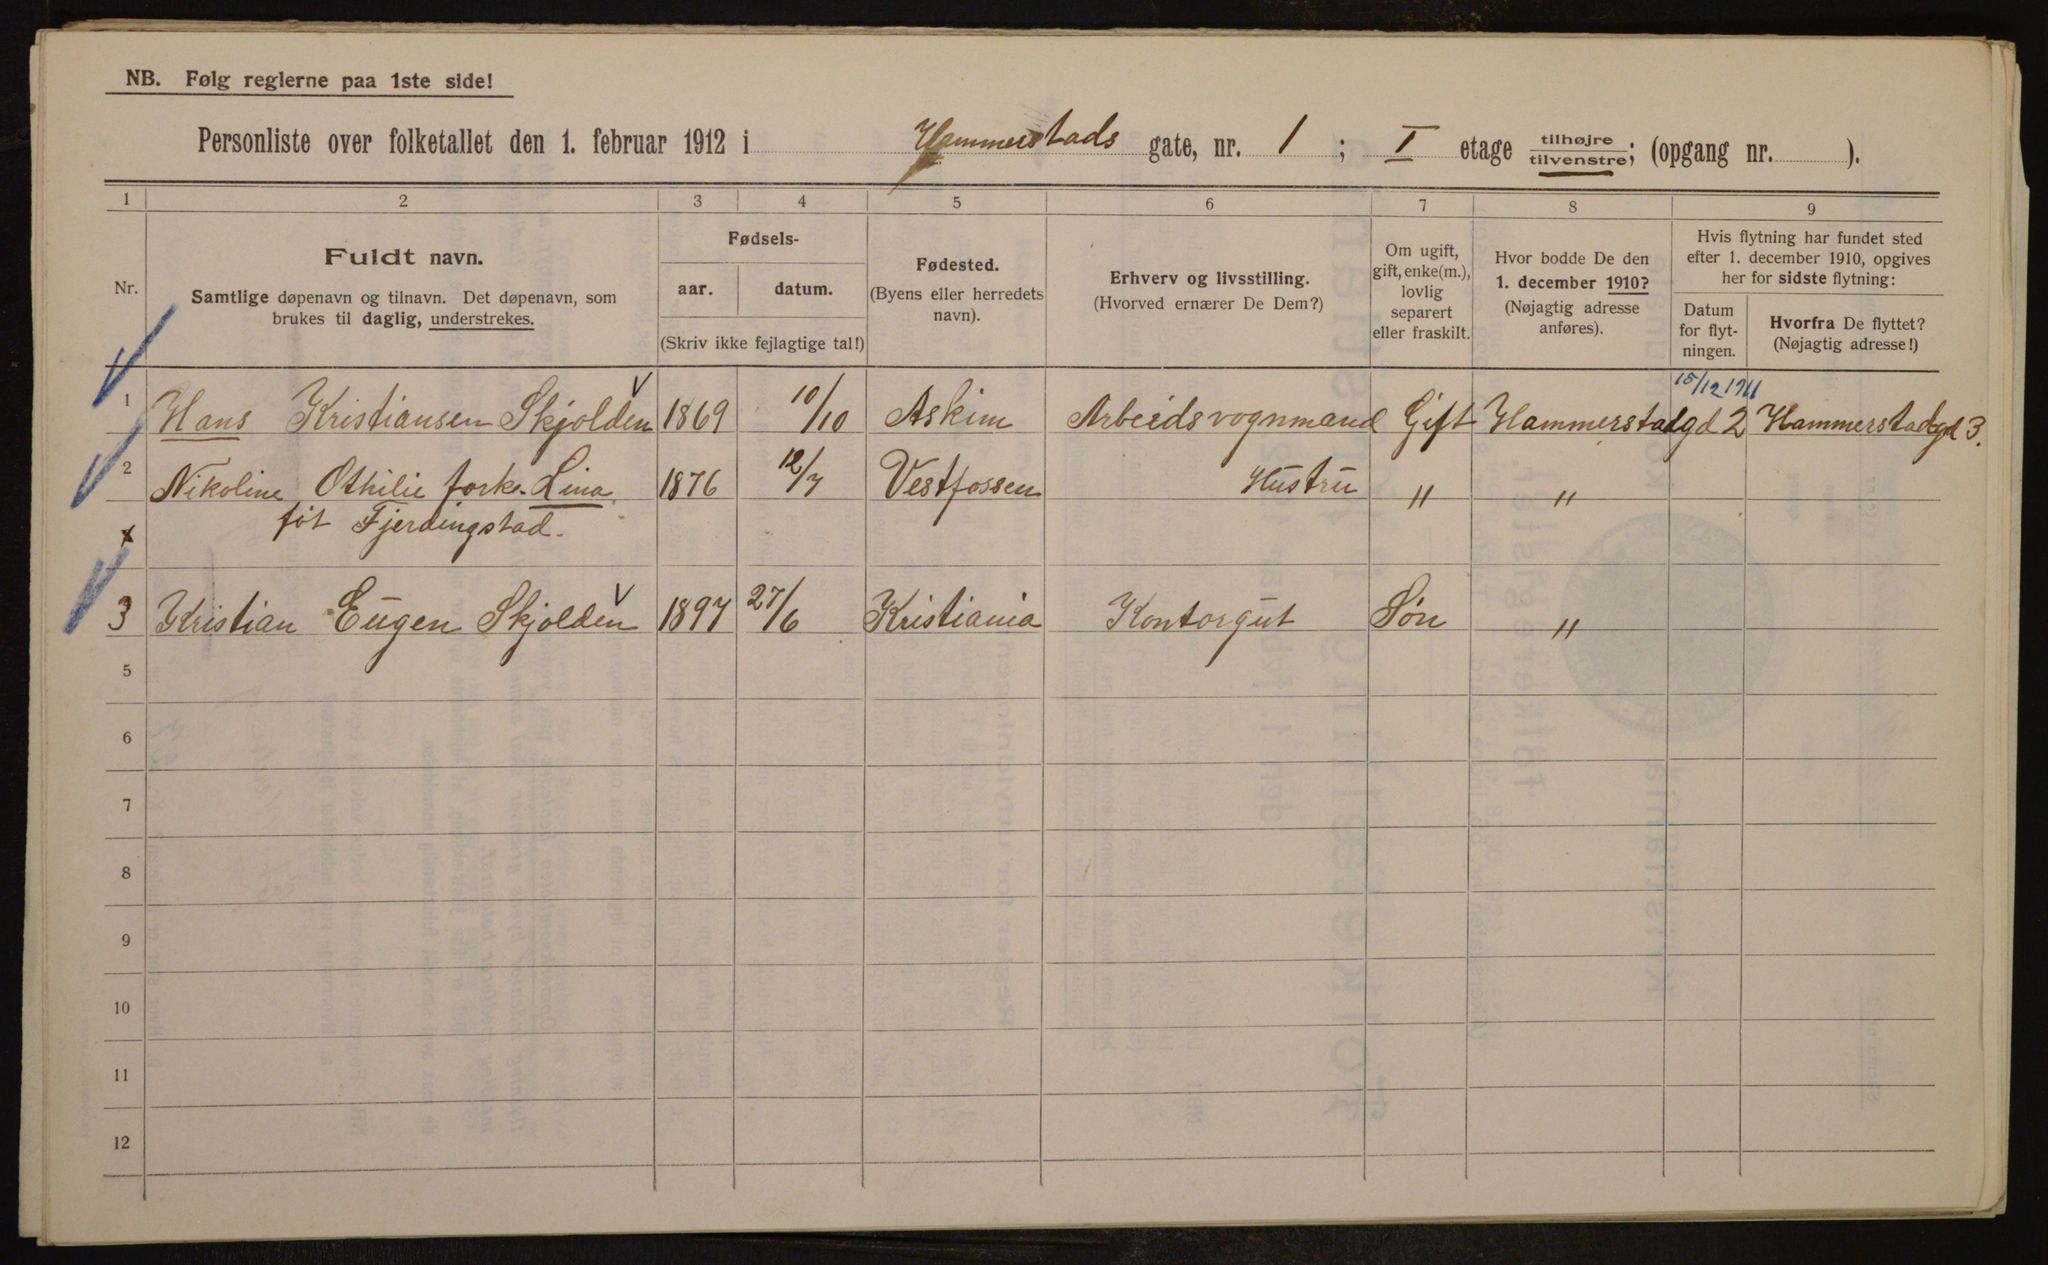 NB. Følg reglerne paa 1ste side!
Personliste over folketallet den 1. februar 1912 i Hammerstads gate, nr. 1 ; I etage tilhøjre/tilvenstre; (opgang nr. ).
1 2 3 4 5 6 7 8 9
Nr.
Fuldt navn.
Samtlige døpenavn og tilnavn. Det døpenavn, som
brukes til daglig, understrekes.
Fødsels-
aar. datum.
(Skriv ikke fejlagtige tal!)
Fødested.
(Byens eller herredets
navn).
Erhverv og livsstilling.
(Hvorved ernærer De Dem?)
Om ugift,
gift, enke(m.),
lovlig
separert
eller fraskilt.
Hvor bodde De den
1. december 1910?
(Nøjagtig adresse
anføres).
Hvis flytning har fundet sted
efter 1. december 1910, opgives
her for sidste flytning:
Datum
for flyt-
ningen.
Hvorfra De flyttet?
(Nøjagtig adresse!)
15/12 1911
1 Hans Kristiansen Skjolden 1869 10/10 Askim Arbeidsvognmand Gift Hammerstadgd 2 Hammerstadgd 3.
2 Nikoline Othilie fork. Lina 1876 12/7 Vestfossen Hustru " "
føt Fjerdingstad.
3 Kristian Eugen Skjolden 1897 27/6 Kristiania Kontorgut Søn "
5
6
7
8
9
10
11
12